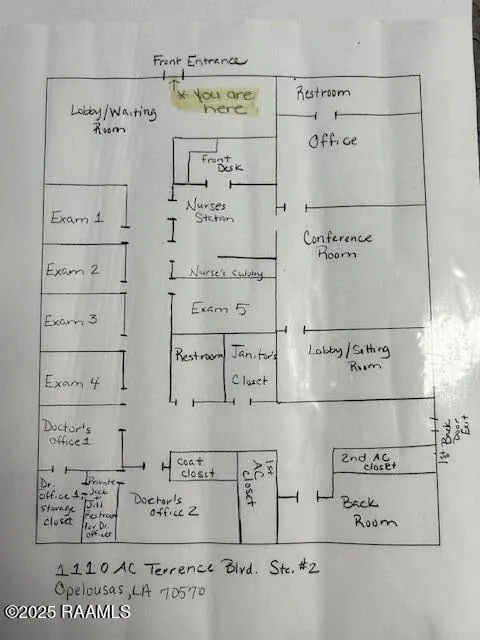 Front Entrance
* You are
here
Lobby/Waiting
Room
Restroom
Office
Front
Desk
Nurses
Station
Exam 1
Conference
Room
Exam 2
Nurse's Cubby
Exam 3
Exam 5
Restroom
Janitor's
Closet
Lobby/Sitting
Room
Exam 4
1st Back
Door
Exit
Doctor's
Office 1
Coat
closet
1st
AC
closet
2nd AC
closet
Dr.
Office 1
storage
closet
Private
Jack
Jill
Restroom
for Dr.
offices
Doctor's
office 2
Back
Room
1110 AC Terrence Blvd. Ste. #2
Opelousas, LA 70570
©2025 RAAMLS